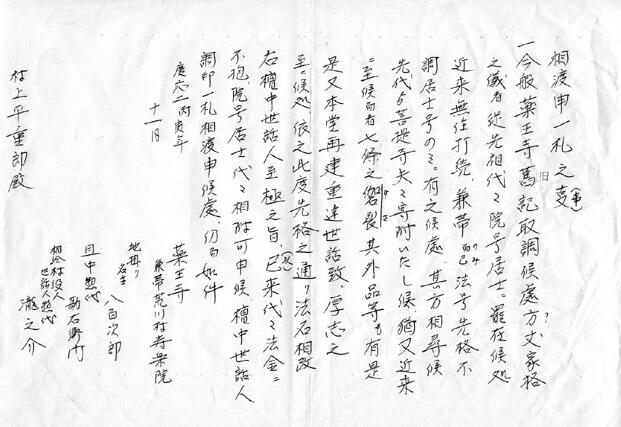 相渡申一札之叓(事)
一今般薬王寺旧記取調候處方丈家格
之儀者従先祖代々院号居士ニ罷在候処
近来無住打続、兼帯而已(のみ)法号先格不
調居士号のミニ有之候處、其方相尋候
先代ゟ菩提寺夫々寄附いたし候、猶又近来
ニ至候而者七條之袈裟其外品等も有是
是又本堂再建重達世話致、厚志之
至ニ候処、依之此度先格之通り法名相改
右檀中世話人至極之旨、已来代々法金ニ
不抱、院号居士代々相附可申候檀中世話人
調印一札相渡申候處、仍而如件
慶応二丙寅年
十一月
薬王寺
兼帯荒川村寿楽院
地掛り
名主 八百次郎
旦中惣代
勘右衛門
相給村役人
世話人惣代
瀧之介
村上平重郎殿